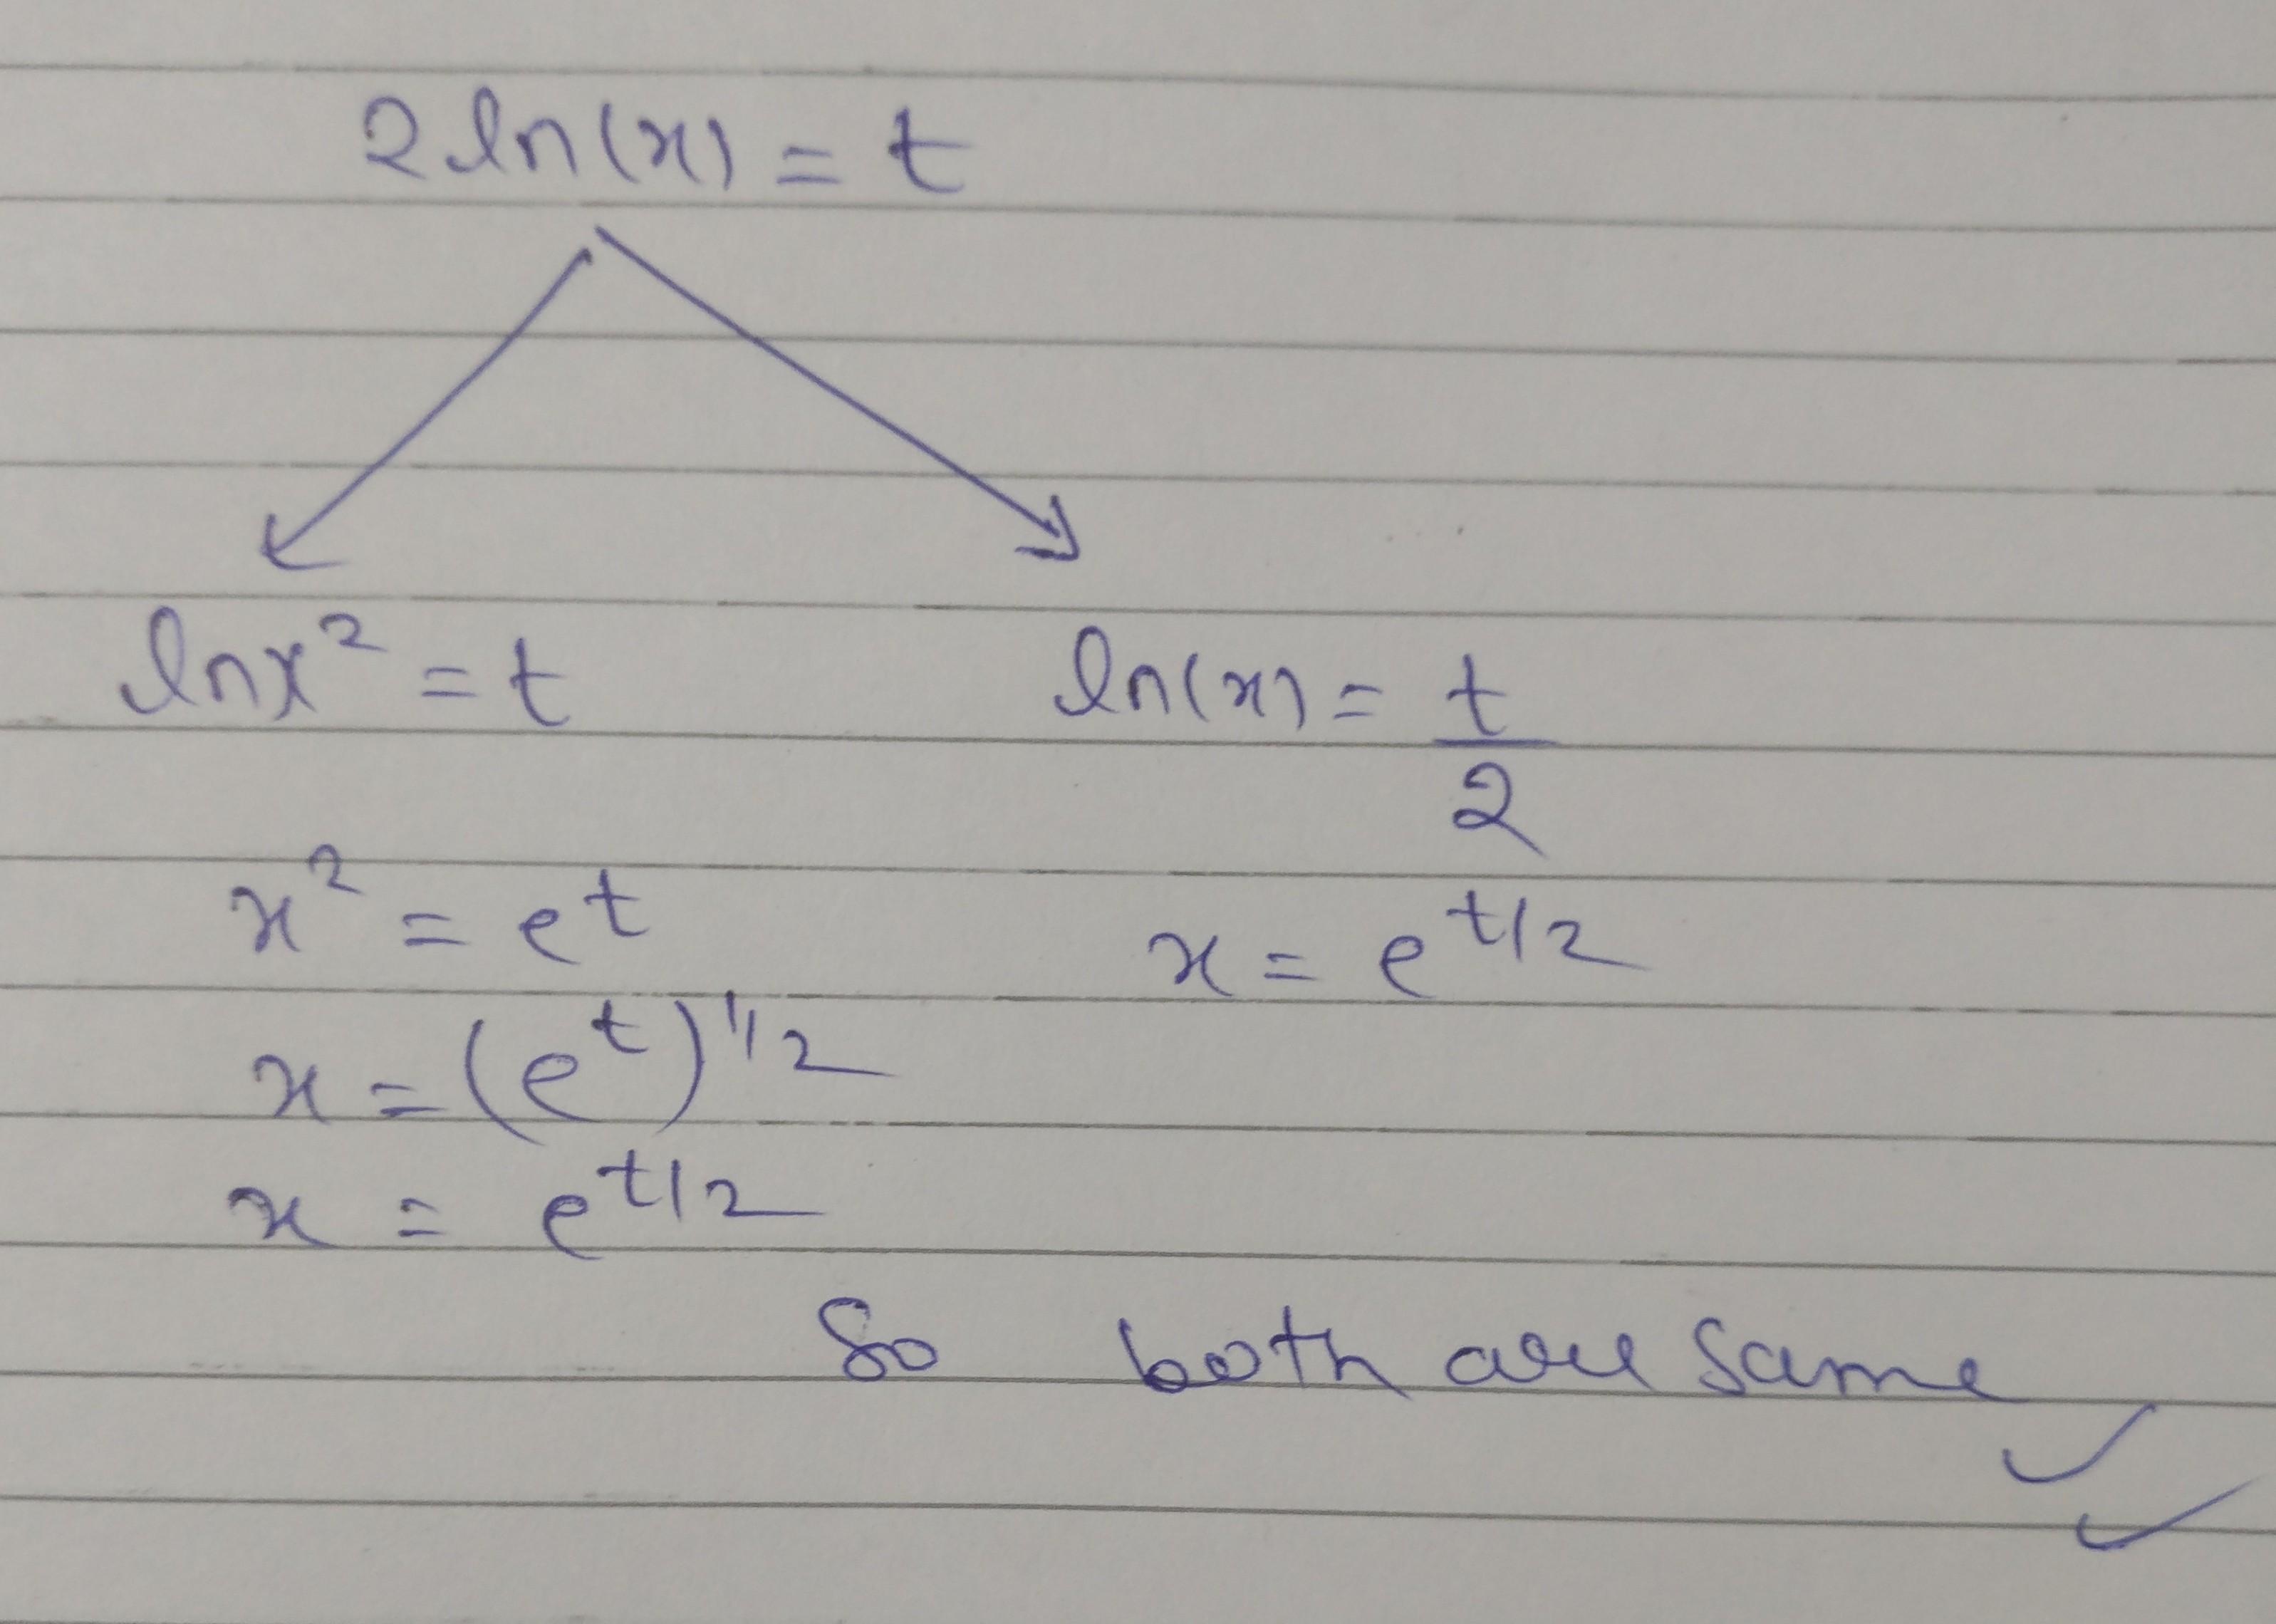 2 ln(x) = t
ln x² = t
ln(x) = t/2
x² = e^t
x = e^t/2
x = (e^t)^1/2
x = e^t/2
So both are same